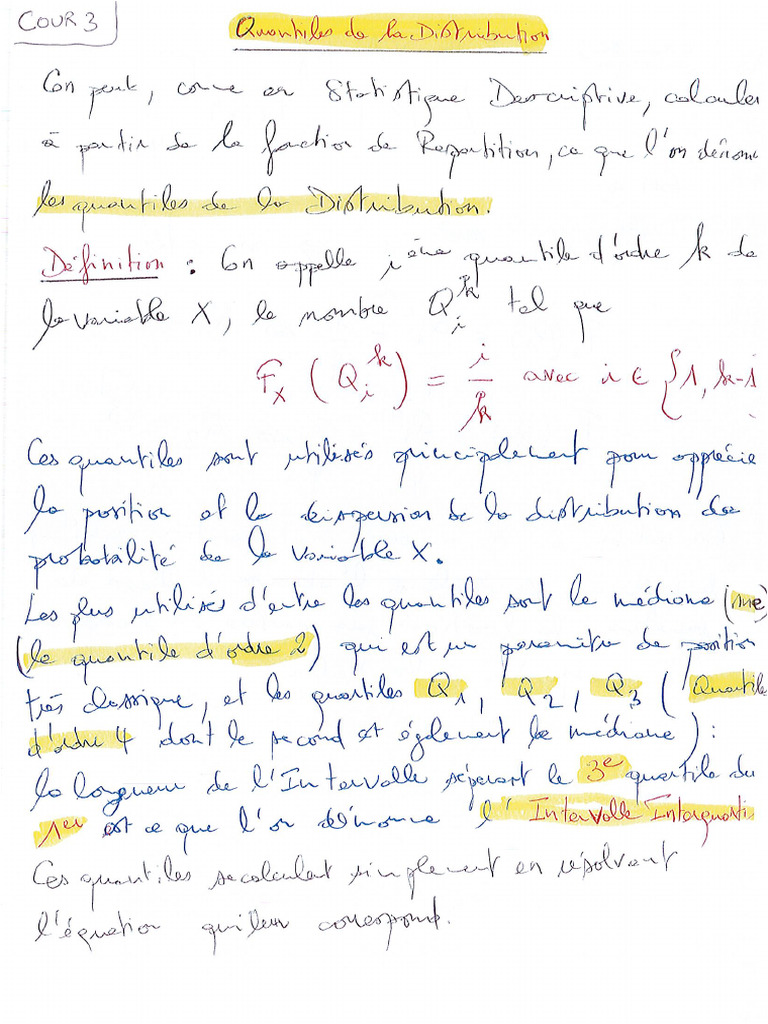 COUR 3
Quantiles de la Distribution
On peut, come en Statistique Descriptive, calculer
à partir de la fonction de Repartition, ce que l'on dénome
les quantiles de la Distribution.
Définition : On appelle i ème quantile d'ordre k de
la variable X, le nombre Q_i^k tel que
F_X (Q_i^k) = i/k avec i ∈ {1, k-1
Ces quantiles sont utilisés principalement pour apprécie
la position et la dispersion de la distribution de
probabilité de la variable X.
Les plus utilisés d'entre les quantiles sont la médiane (me)
(le quantile d'ordre 2) qui est un paramètre de position
très classique, et les quartiles Q1, Q2, Q3 (Quantile
d'ordre 4 dont le second est également la médiane) :
la longueur de l'Intervalle séparant le 3e quartile du
1er est ce que l'on dénome l'Intervalle Interquarti
Ces quantiles se calculent simplement en résolvant
l'équation qui leur correspond.